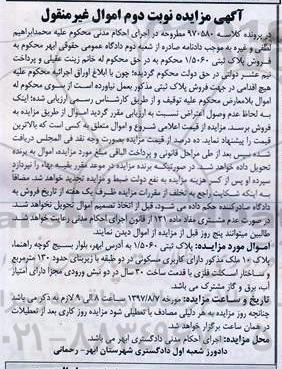 آگهی مزایده نوبت دوم اموال غیرمنقول
در پرونده کلاسه ۹۷۰۵۸۰ مطروحه در اجرای احکام مدنی محکوم علیه محمدابراهیم
لطفی و غیره به موجب دادنامه صادره از شعبه دوم دادگاه عمومی حقوقی ابهر محکوم به
فروش پلاک ثبتی ۱/۵۰۶۰ و محکوم به در حق محکوم له خانم زینت عقیلی و پرداخت
نیم عشر دولتی در حق دولت محکوم گردیده؛ چون با ابلاغ اوراق اجرائیه محکوم علیه
هیچ اقدامی در جهت فروش پلاک ثبتی مذکور بعمل نیاورده است از سوی محکوم له
اموال بلامعارض محکوم علیه توقیف و از طریق کارشناس رسمی ارزیابی شده؛ اینک
به لحاظ عدم وصول اعتراض نسبت به ارزیابی مقرر گردید اموال از طریق مزایده به
فروش برسد. مزایده از قیمت اعلامی شروع و اموال متعلق به کسی است که بالاترین
قیمت را پیشنهاد نماید. ده درصد از قیمت مزایده بصورت وجه نقد فی المجلس دریافت
شده سپس بعد از طی مراحل قانونی و پرداخت الباقی مبلغ مورد مزایده، اموال به برنده
تحویل داده خواهد شد. در صورتیکه برنده مزایده در موعد مقرر بقیه بها را نپردازد
سپرده او پس از کسر هزینه مزایده به نفع دولت ضبط و مزایده تجدید خواهد شد. مضافا
به اینکه شکایت راجع به تخلف از مقررات مزایده ظرف یک هفته از تاریخ فروش به
دادگاه صادرکننده حکم داده می شود، قبل از اتخاذ تصمیم اموال تحویل نخواهد شد.
در صورت عدم مشتری مفاد ماده ۱۳۱ از قانون اجرای احکام مدنی رعایت خواهد شد.
طالبین میتوانند پنج روز قبل از مزایده از اموال دیدن نمایند.
اموال مورد مزایده: پلاک ثبتی ۱/۵۰۶۰ به آدرس ابهر، بلوار بسیج کوچه راهنما،
پلاک ۱۰ ملک مذکور دارای کاربری مسکونی در دو طبقه با زیربنای حدود ۱۳۰ مترمربع
و ساختار اسکلت فلزی با قدمت ساخت ۳۰ سال در دو نبش ورودی مجزا دارای امتیاز
آب، برق و گاز مشترک می باشد.
تاریخ و ساعت مزایده: مورخه ۱۳۹۷/۸/۷ ساعت ۸ الی ۹ لازم به ذکر می باشد
چنانچه روز مزایده به هر دلیلی مصادف با تعطیلی شود مزایده روز کاری بعد از تعطیلات
در همان ساعت برگزار خواهد شد.
محل مزایده: اجرای احکام مدنی دادگستری ابهر می باشد.
دادورز شعبه اول دادگستری شهرستان ابهر- رحمانی